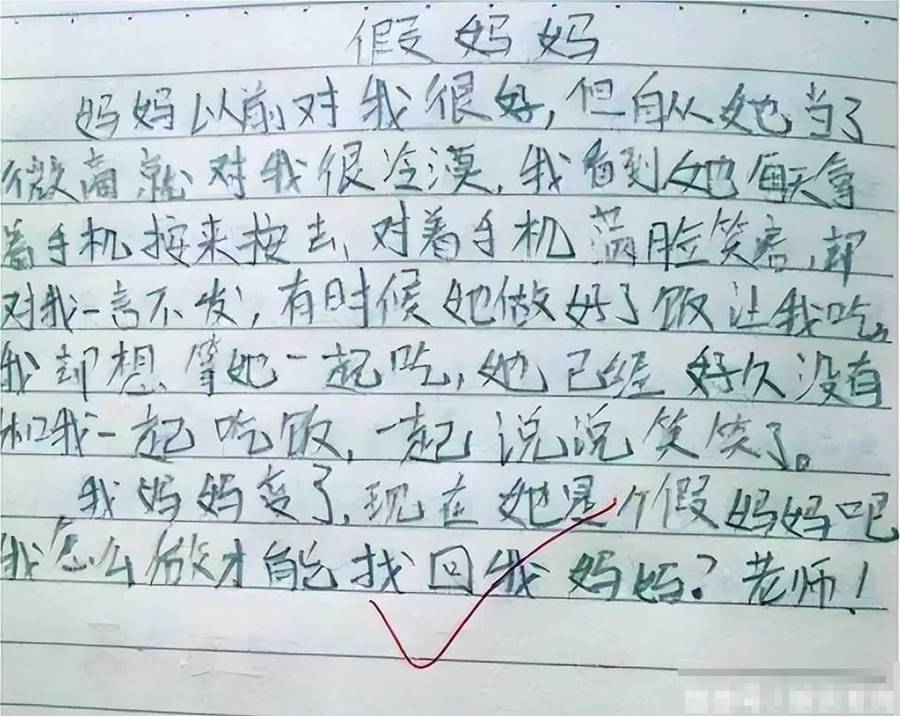 假妈妈
妈妈以前对我很好,但自从她当了
微商就对我很冷漠,我看到她每天拿
着手机按来按去,对着手机满脸笑容,却
对我一言不发,有时候她做好了饭让我吃。
我却想等她一起吃,她已经好久没有
和我一起吃饭,一起说说笑笑了。
我妈妈变了,现在她是个假妈妈吧
我怎么做才能找回我妈妈?老师!